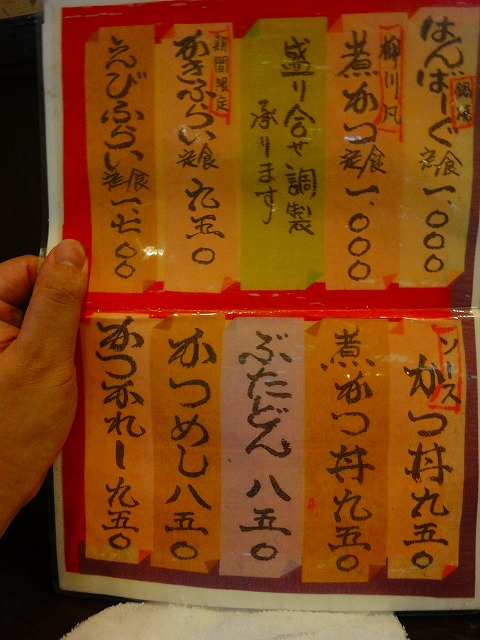 はんばーぐ定食 一、〇〇〇
鍋焼
柳川風
煮かつ定食 一、〇〇〇
盛り合せ調製
承ります
期間限定
かきふらい定食 九五〇
えびふらい定食 一、七〇〇
ソース
かつ丼 九五〇
煮かつ丼 九五〇
ぶたどん 八五〇
かつめし 八五〇
かつかれー 九五〇